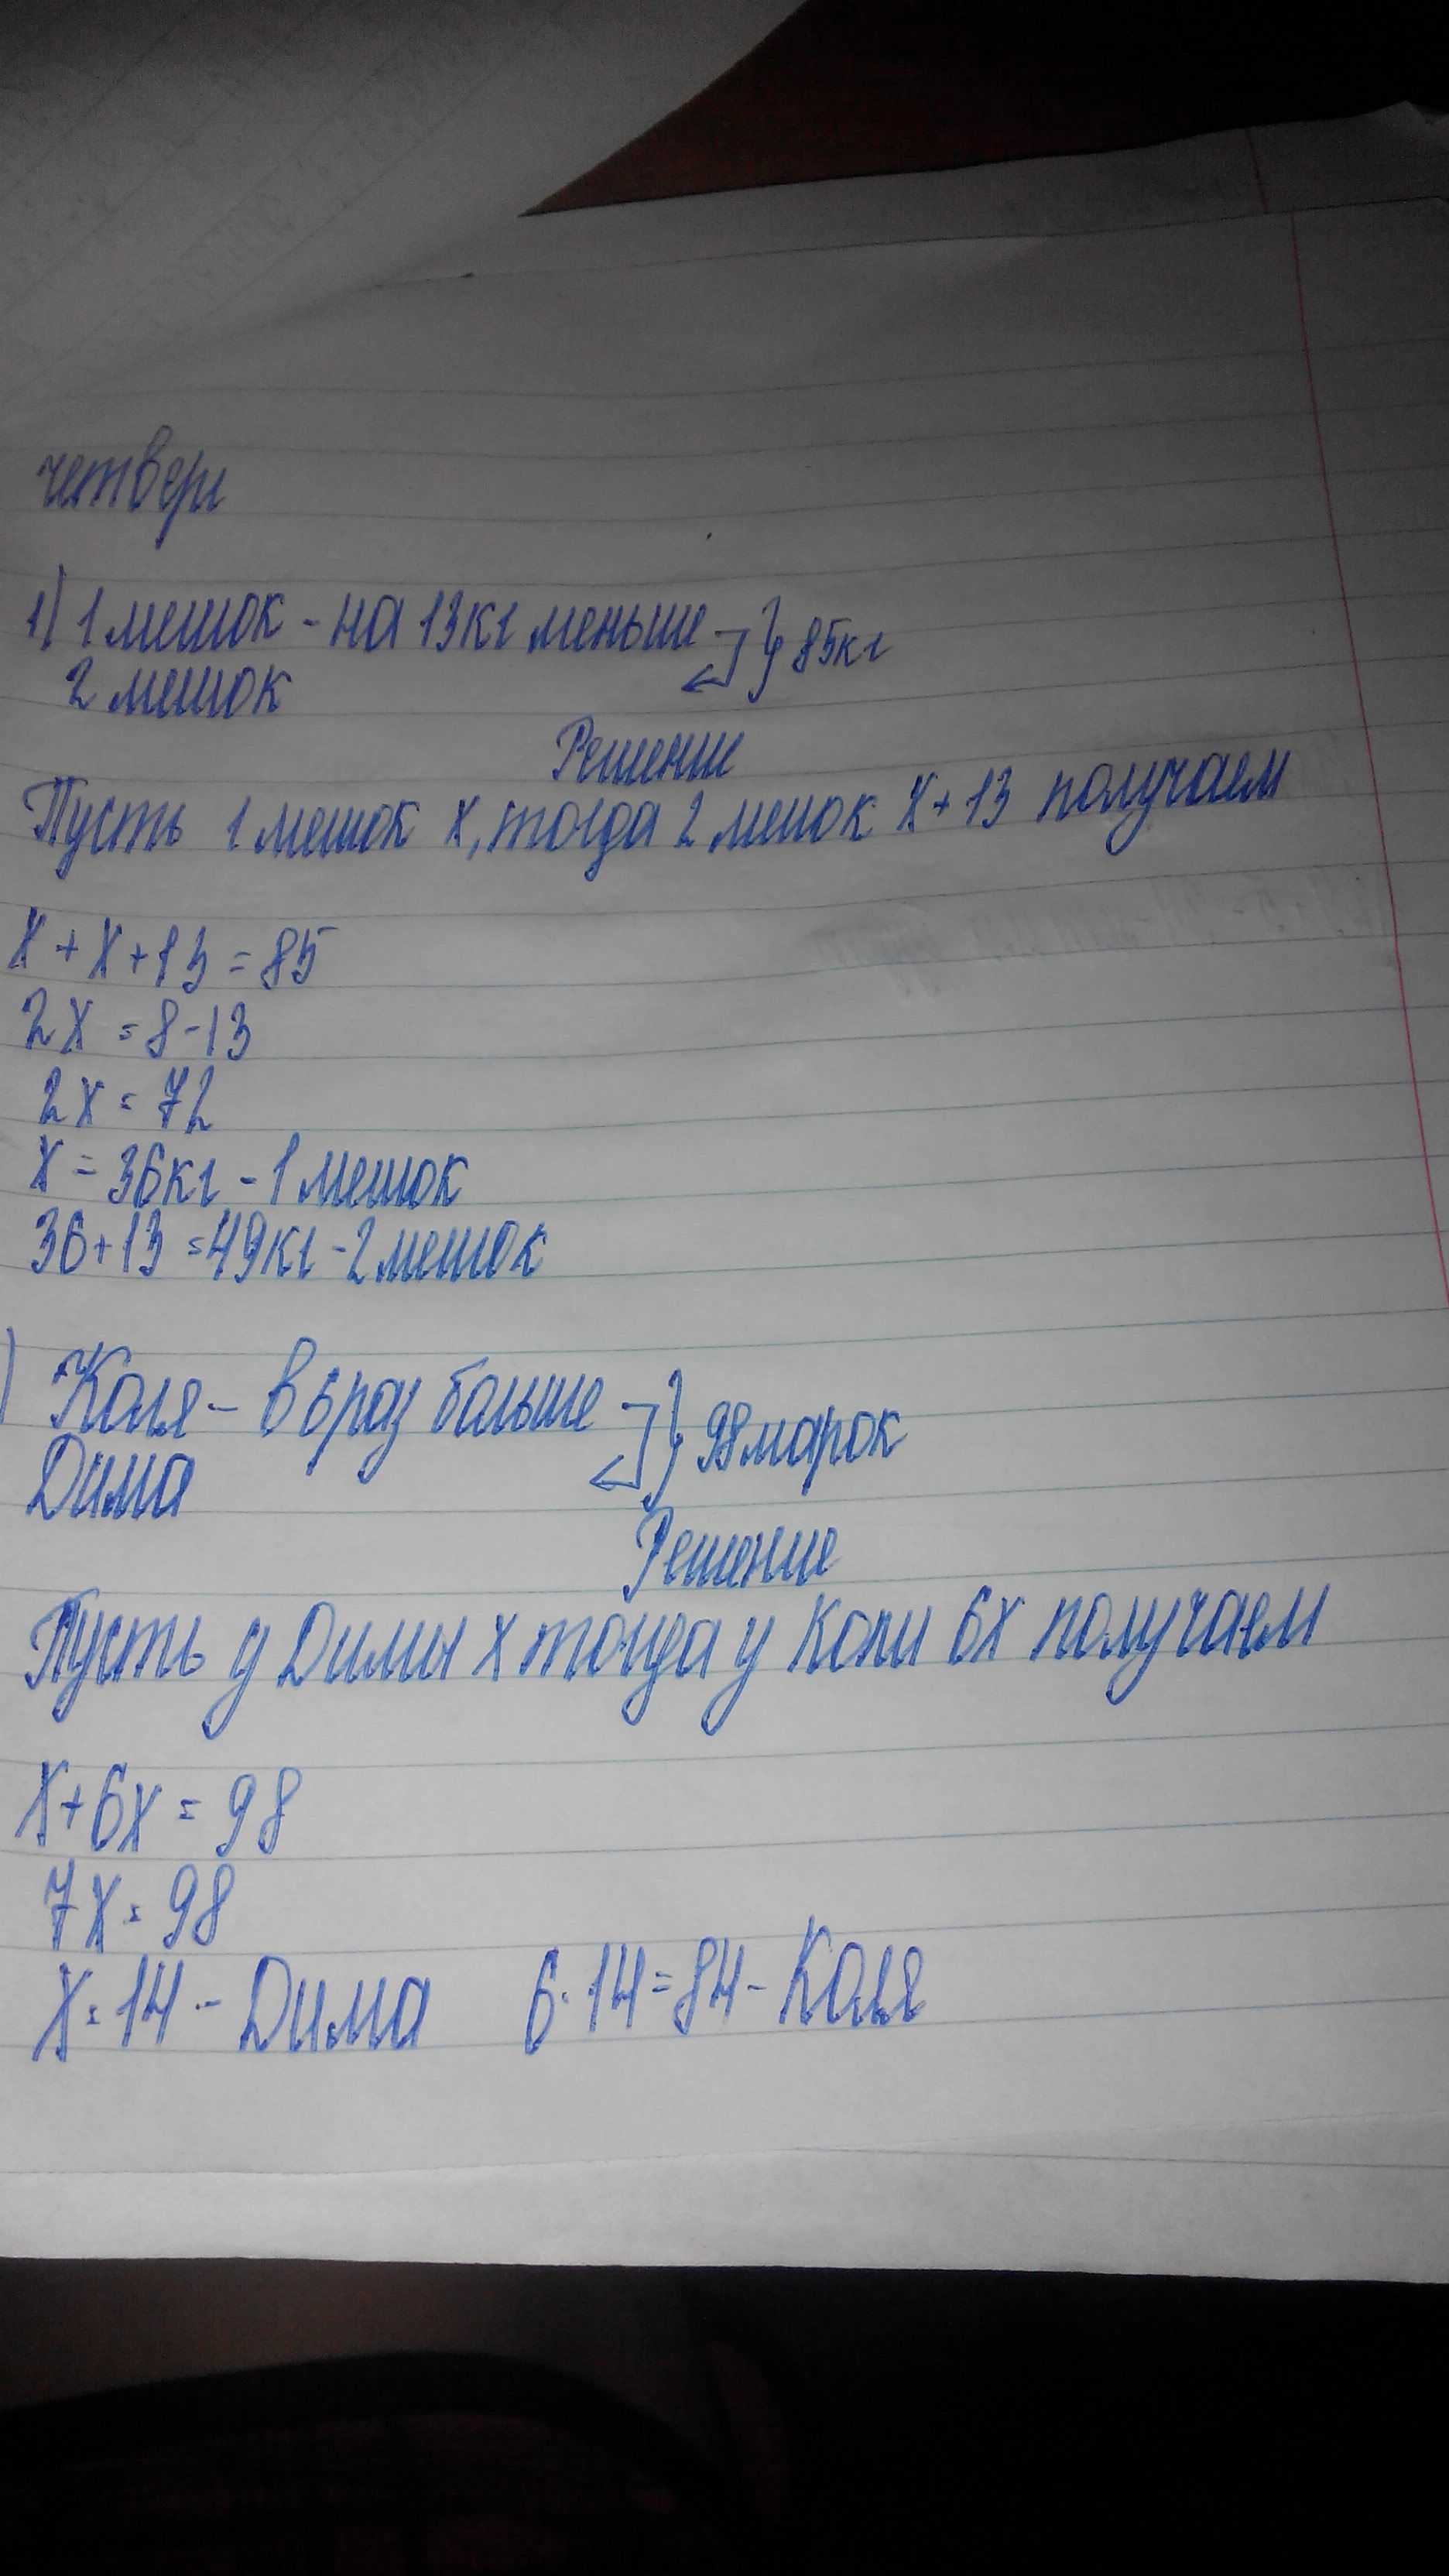 четверг
1) 1 мешок - на 13кг меньше } 85кг
2 мешок
Решение
Пусть 1 мешок x, тогда 2 мешок x + 13 получаем
x + x + 13 = 85
2x = 8-13
2x = 72
x = 36кг - 1 мешок
36+13 = 49кг - 2 мешок
) Коля - в 6 раз больше } 98 марок
Дима
Решение
Пусть у Димы x тогда у Коли 6x получаем
x+6x = 98
7x = 98
x = 14 - Дима 6·14=84 - Коля